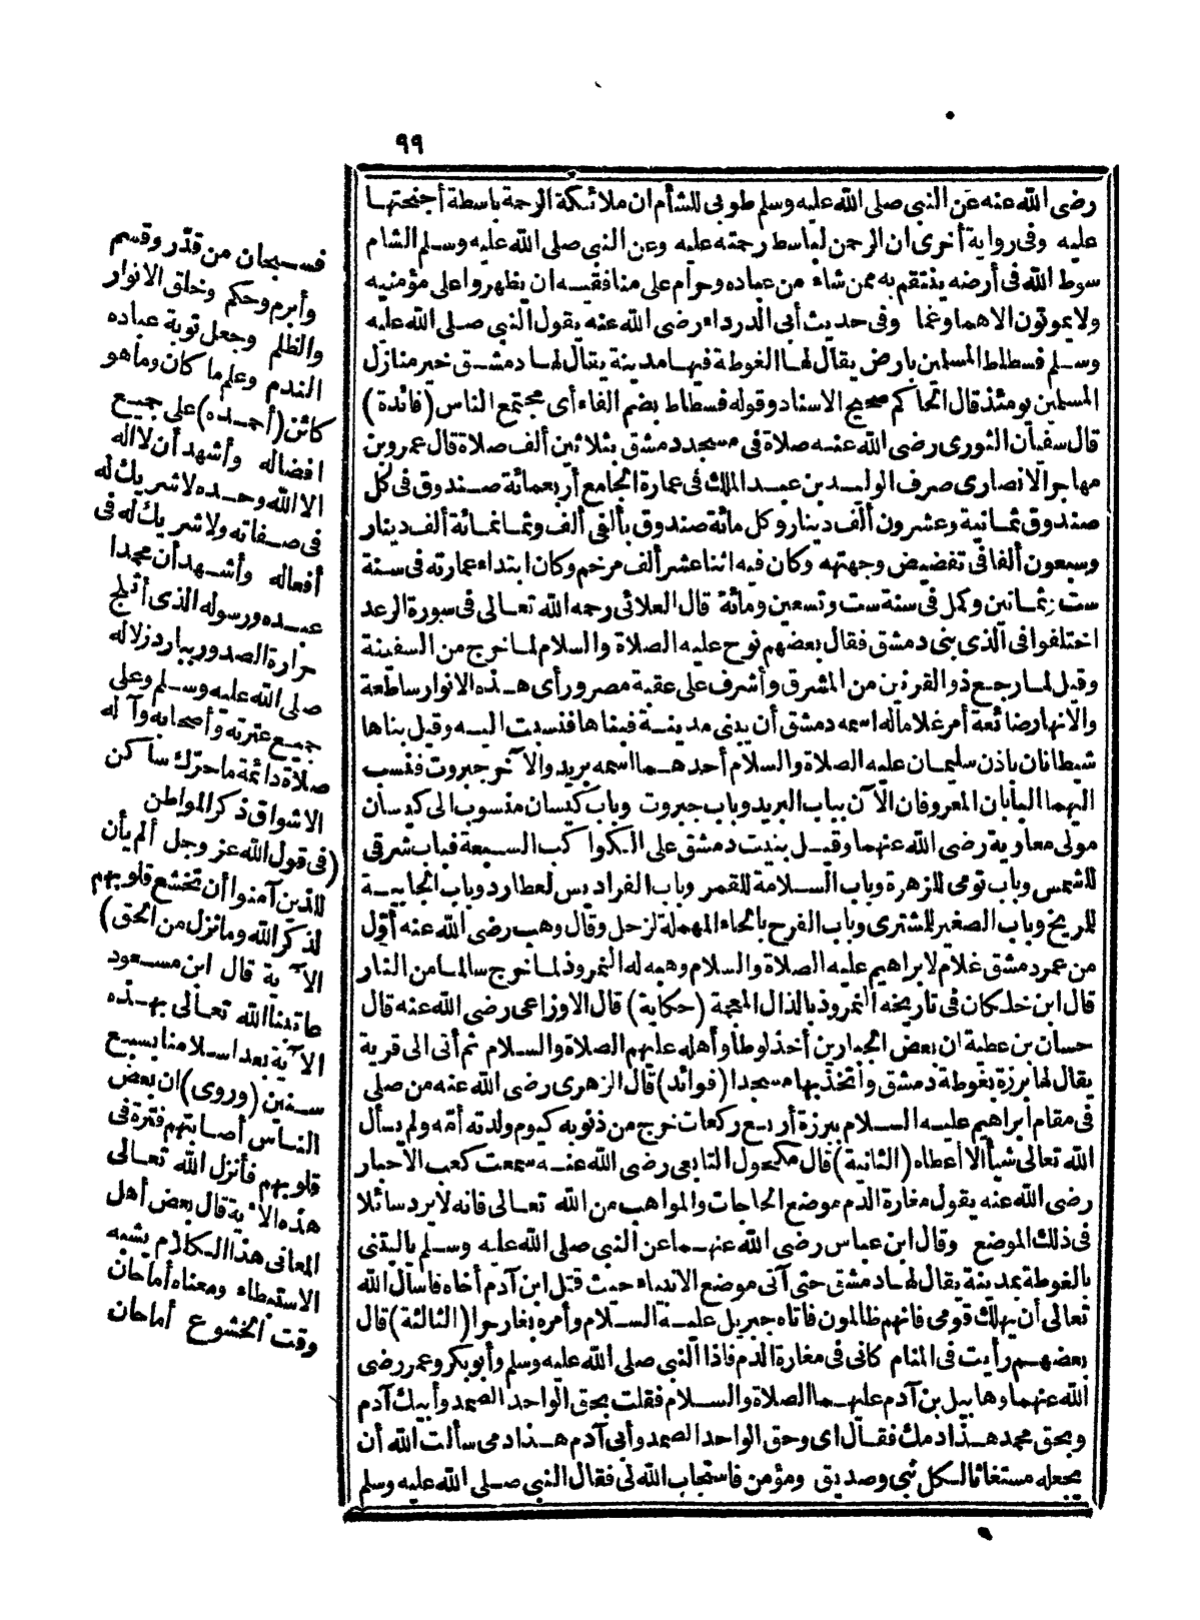 ٩٩
رضى الله عنه عن النبى صلى الله عليه وسلم طوبى للشأم ان ملائكة الرحمة باسطة أجنحتها
عليه وفى رواية أخرى ان الرحمن لباسط رحمته عليه وعن النبى صلى الله عليه وسلم الشام
سوط الله فى أرضه ينتقم به ممن شاء من عباده وحرام على منافقيه ان يظهروا على مؤمنيه
ولا يموتون الا هما وغما وفى حديث أبى الدرداء رضى الله عنه يقول النبى صلى الله عليه
وسلم فسطاط المسلمين بارض يقال لها الغوطة فيها مدينة يقال لها دمشق خير منازل
المسلمين يومئذ قال الحاكم صحيح الاسناد وقوله فسطاط بضم الفاء أى مجتمع الناس (فائدة)
قال سفيان الثورى رضى الله عنه صلاة فى مسجد دمشق بثلاثين ألف صلاة قال عمرو بن
مهاجر الانصارى صرف الوليد بن عبد الملك فى عمارة الجامع أربعمائة صندوق فى كل
صندوق ثمانية وعشرون ألف دينار وكل مائة صندوق بألفى ألف وثمانمائة ألف دينار
وسبعون ألفا فى تفضيض وجهته وكان فيه اثنا عشر ألف مرخم وكان ابتداء عمارته فى سنة
ست وثمانين وكمل فى سنة ست وتسعين ومائة قال العلائى رحمه الله تعالى فى سورة الرعد
اختلفوا فى الذى بنى دمشق فقال بعضهم نوح عليه الصلاة والسلام لما خرج من السفينة
وقيل لما رجع ذو القرنين من المشرق وأشرف على عقبة مصر ورأى هذه الانوار ساطعة
والانهار ضائعة أمر غلاما له اسمه دمشق أن يبنى مدينة فبناها فنسبت اليه وقيل بناها
شيطانان باذن سليمان عليه الصلاة والسلام أحدهما اسمه بريد والآخر جيروت فنسب
اليهما البابان المعروفان الآن بباب البريد وباب جيروت وباب كيسان منسوب الى كيسان
مولى معاوية رضى الله عنهما وقيل بنيت دمشق على الكواكب السبعة فباب شرقى
للشمس وباب تومى للزهرة وباب السلامة للقمر وباب الفراديس لعطارد وباب الجابية
للمريخ وباب الصغير للمشترى وباب الفرح بالحاء المهملة لزحل وقال وهب رضى الله عنه أول
من عمر دمشق غلام لابراهيم عليه الصلاة والسلام وهبه له النمروذ لما خرج سالما من النار
قال ابن خلكان فى تاريخه النمروذ بالذال المعجمة (حكاية) قال الاوزاعى رضى الله عنه قال
حسان بن عطية ان بعض الجبارين أخذ لوطا وأهله عليهم الصلاة والسلام ثم أتى الى قرية
يقال لها برزة بغوطة دمشق واتخذ بها مسجدا (فوائد) قال الزهرى رضى الله عنه من صلى
فى مقام ابراهيم عليه السلام ببرزة أربع ركعات خرج من ذنوبه كيوم ولدته أمه ولم يسأل
الله تعالى شيأ الا أعطاه (الثانية) قال مكحول التابعى رضى الله عنه سمعت كعب الاحبار
رضى الله عنه يقول مغارة الدم موضع الحاجات والمواهب من الله تعالى فانه لا يرد سائلا
فى ذلك الموضع وقال ابن عباس رضى الله عنهما عن النبى صلى الله عليه وسلم ياليتنى
بالغوطة بمدينة يقال لها دمشق حتى آتى موضع الانبياء حيث قتل ابن آدم أخاه فاسأل الله
تعالى أن يهلك قومى فانهم ظالمون فاتاه جبريل عليه السلام وأمره بغار حرا (الثالثة) قال
بعضهم رأيت فى المنام كانى فى مغارة الدم فاذا النبى صلى الله عليه وسلم وأبو بكر وعمر رضى
الله عنهما وهابيل بن آدم عليهما الصلاة والسلام فقلت بحق الواحد الصمد وأبيك آدم
وبحق محمد هذا دمك فقال اى وحق الواحد الصمد وأبى آدم هذا دمى سألت الله أن
يجعله مستغاثا لكل نبى وصديق ومؤمن فاستجاب الله لى فقال النبى صلى الله عليه وسلم
فسبحان من قدر وقسم
وأبرم وحكم وخلق الانوار
والظلم وجعل توبة عباده
الندم وعلم ما كان وما هو
كائن (أحمده) على جميع
افضاله وأشهد أن لا اله
الا الله وحده لا شريك له
فى صفاته ولا شريك له فى
أفعاله وأشهد أن محمدا
عبده ورسوله الذى أثلج
حرارة الصدور ببارد زلاله
صلى الله عليه وسلم وعلى
جميع عترته وأصحابه وآله
صلاة دائمة ما حرك ساكن
الاشواق ذكر المواطن
(فى قول الله عز وجل ألم يأن
للذين آمنوا أن تخشع قلوبهم
لذكر الله وما نزل من الحق)
الآية قال ابن مسعود
عاتبنا الله تعالى بهذه
الآية بعد اسلامنا بسبع
سنين (وروى) ان بعض
الناس أصابتهم فترة فى
قلوبهم فأنزل الله تعالى
هذه الآية قال بعض أهل
المعانى هذا الكلام يشبه
الاستبطاء ومعناه أما حان
وقت الخشوع أما حان